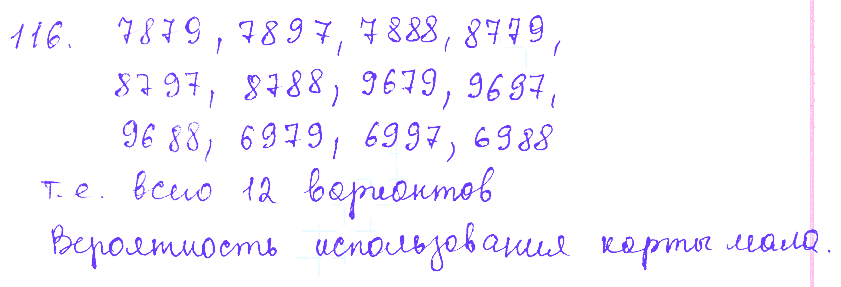 116. 7879, 7897, 7888, 8779,
8797, 8788, 9679, 9697,
9688, 6979, 6997, 6988
т.е. всего 12 вариантов
Вероятность использования карты мала.